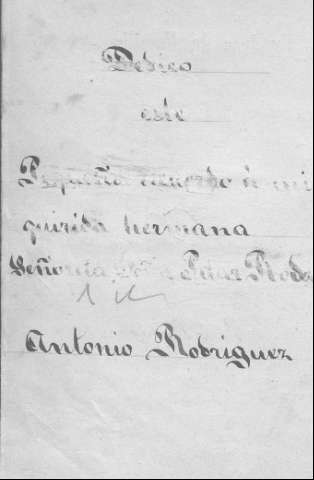 Dedico
este
Pequeña recuerdo á mi
querida hermana
Señorita Pilar Rodr
Antonio Rodriguez